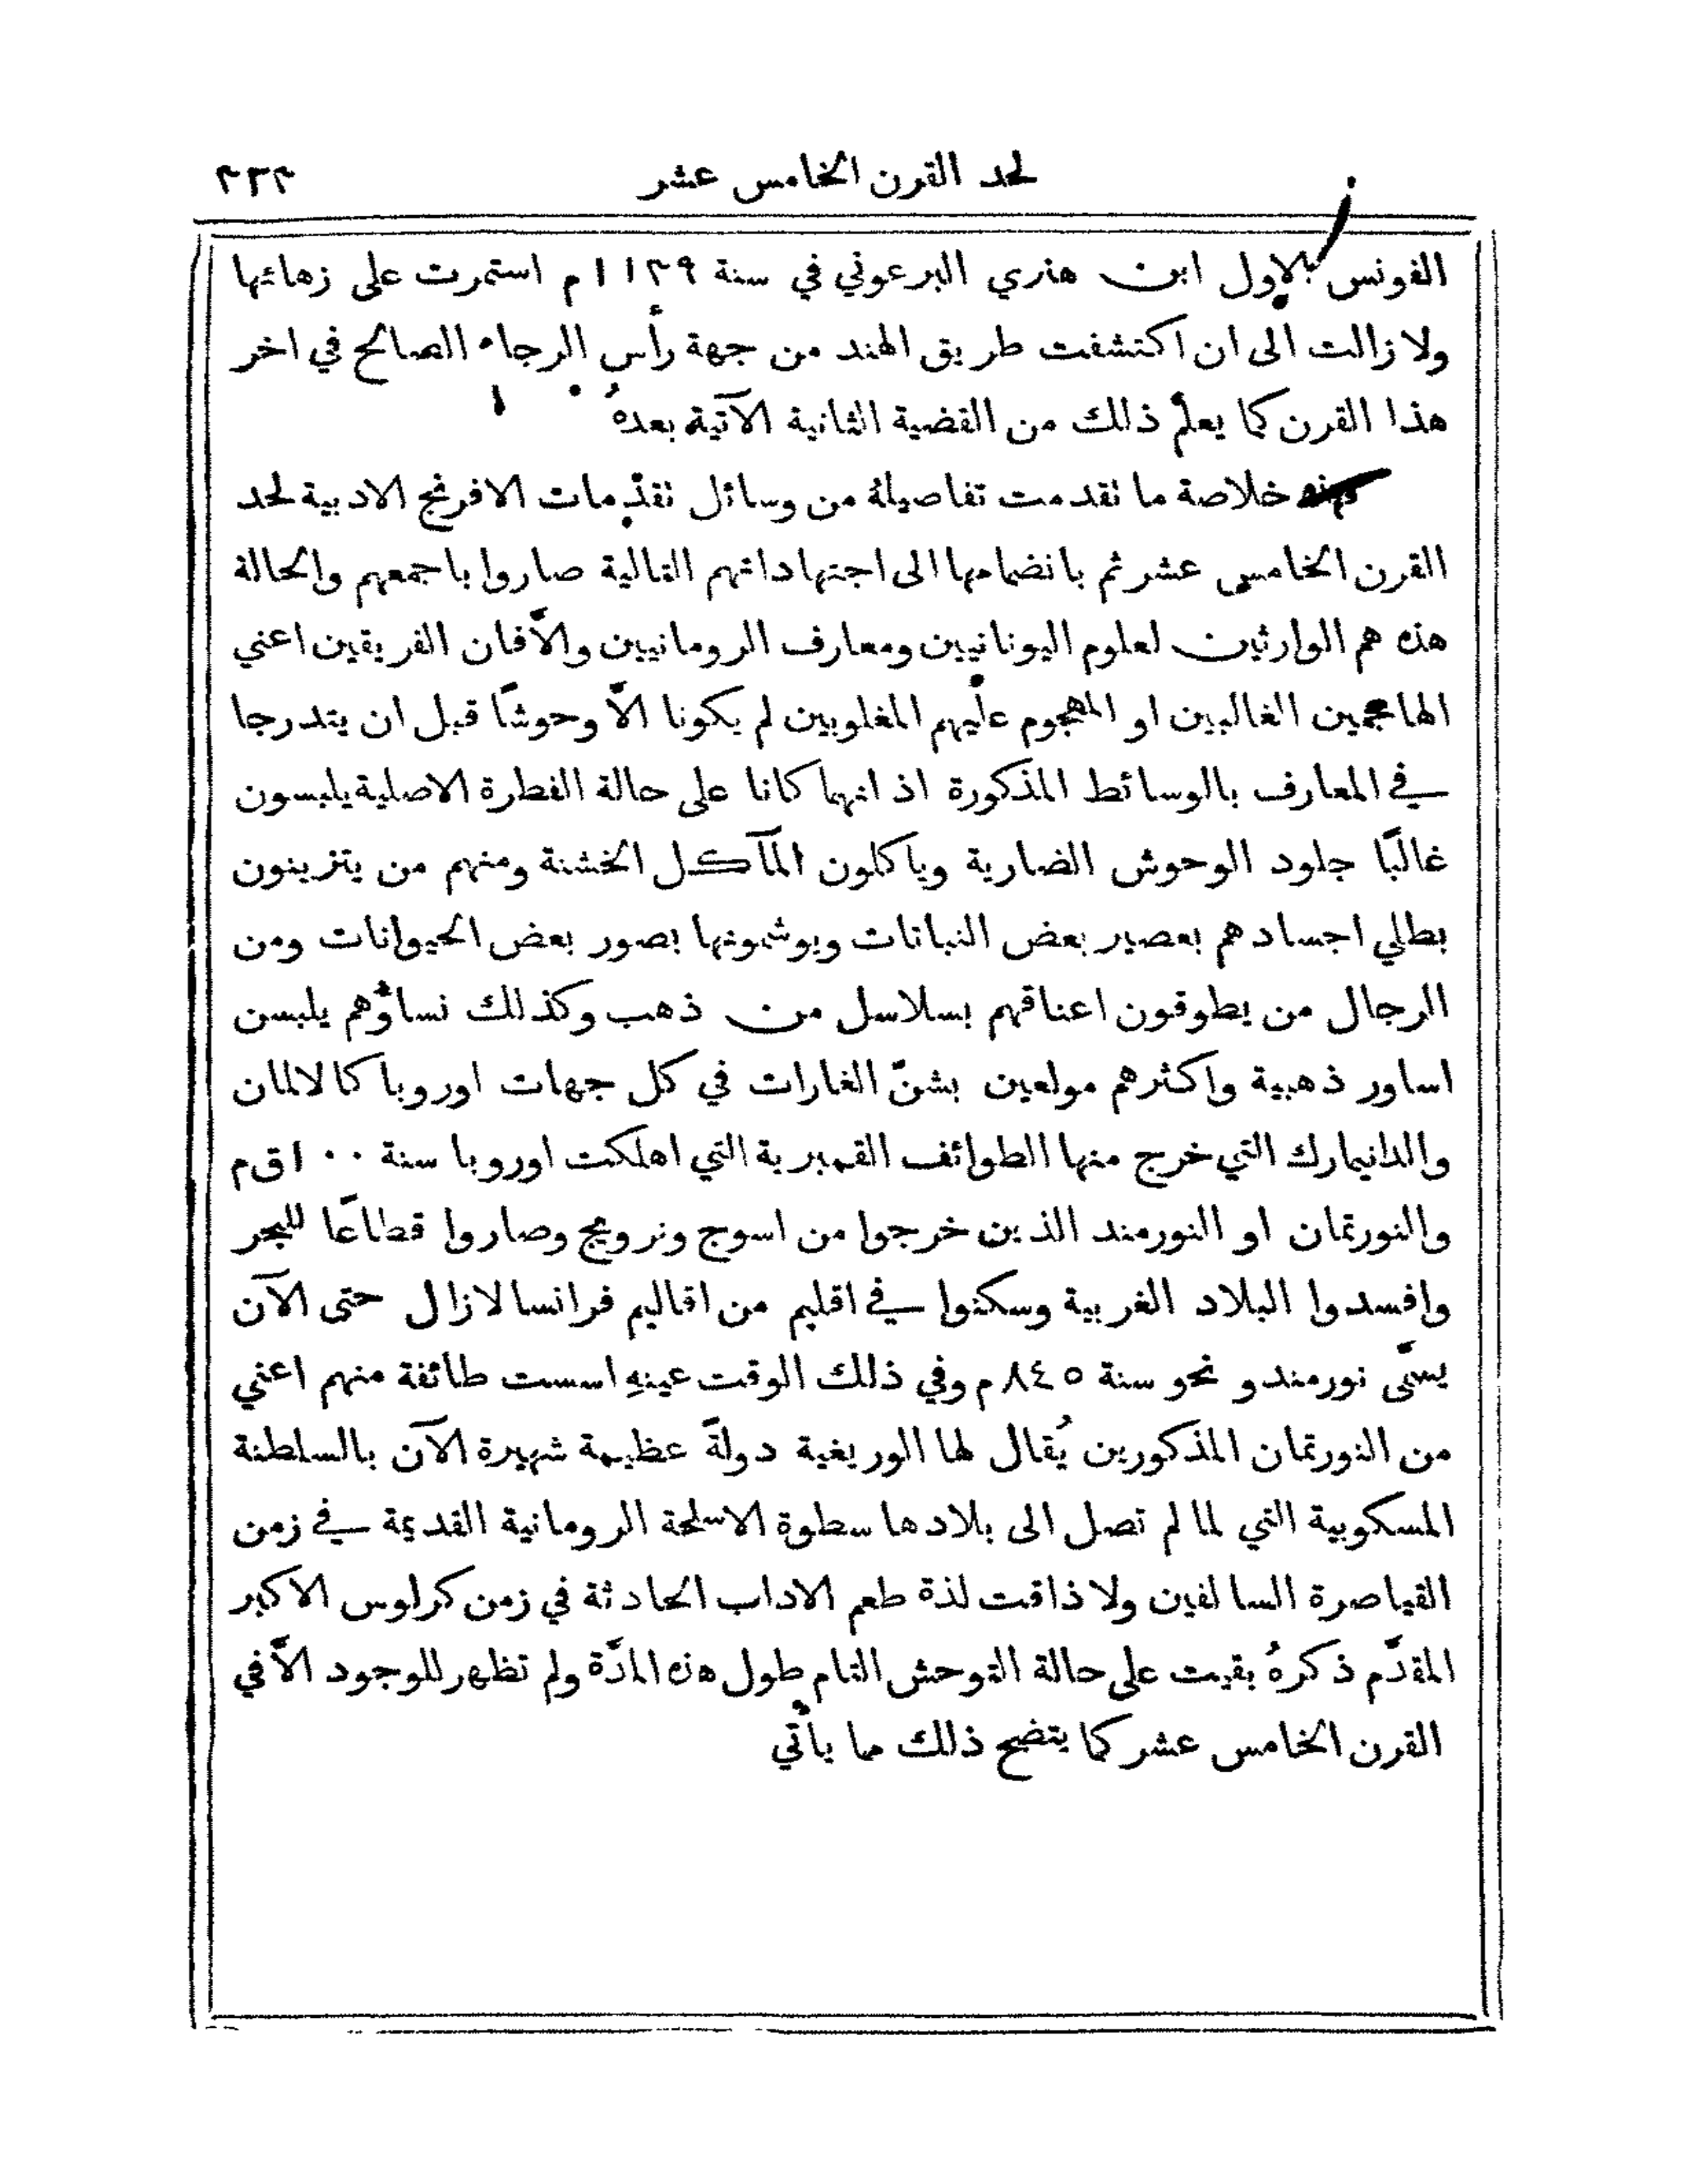 لحد القرن الخامس عشر ٢٣٣
الفونس الاول ابن هنري البرعوني في سنة ١١٣٩ م استمرت على زهائها
ولا زالت الى ان اكتشفت طريق الهند من جهة رأس الرجاء الصالح في اخر
هذا القرن كما يعلم ذلك من القضية الثانية الآتية بعدهُ
فهذه خلاصة ما تقدمت تفاصيلهُ من وسائل تقدّمات الافرنج الادبية لحد
القرن الخامس عشر ثم بانضمامها الى اجتهاداتهم التالية صاروا باجمعهم والحالة
هذه هم الوارثين لعلوم اليونانيين ومعارف الرومانيين والاَّ فان الفريقين اعني
الهاجمين الغالبين او المهجوم عليهم المغلوبين لم يكونا الاَّ وحوشًا قبل ان يتدرجا
في المعارف بالوسائط المذكورة اذ انهما كانا على حالة الفطرة الاصلية يلبسون
غالبًا جلود الوحوش الضارية وياكلون المآكل الخشنة ومنهم من يتزينون
بطلي اجسادهم بعصير بعض النباتات ويوشمونها بصور بعض الحيوانات ومن
الرجال من يطوقون اعناقهم بسلاسل من ذهب وكذلك نساؤُهم يلبسن
اساور ذهبية واكثرهم مولعين بشنّ الغارات في كل جهات اوروبا كالالمان
والدانيمارك التي خرج منها الطوائف القمبرية التي اهلكت اوروبا سنة ١٠٠ ق م
والنورتمان او النورمند الذين خرجوا من اسوج ونرويج وصاروا قطاعًا للبحر
وافسدوا البلاد الغربية وسكنوا في اقليم من اقاليم فرانسا لازال حتى الآن
يسمَّى نورمندو نحو سنة ٨٤٥ م وفي ذلك الوقت عينهِ اسست طائفة منهم اعني
من النورتمان المذكورين يُقال لها الوريغية دولةً عظيمة شهيرة الآن بالسلطنة
المسكوبية التي لما لم تصل الى بلادها سطوة الاسلحة الرومانية القديمة في زمن
القياصرة السالفين ولا ذاقت لذة طعم الاداب الحادثة في زمن كرلوس الاكبر
المقدَّم ذكرهُ بقيت على حالة التوحش التام طول هذه المدَّة ولم تظهر للوجود الاَّ في
القرن الخامس عشر كما يتضح ذلك مما يأتي